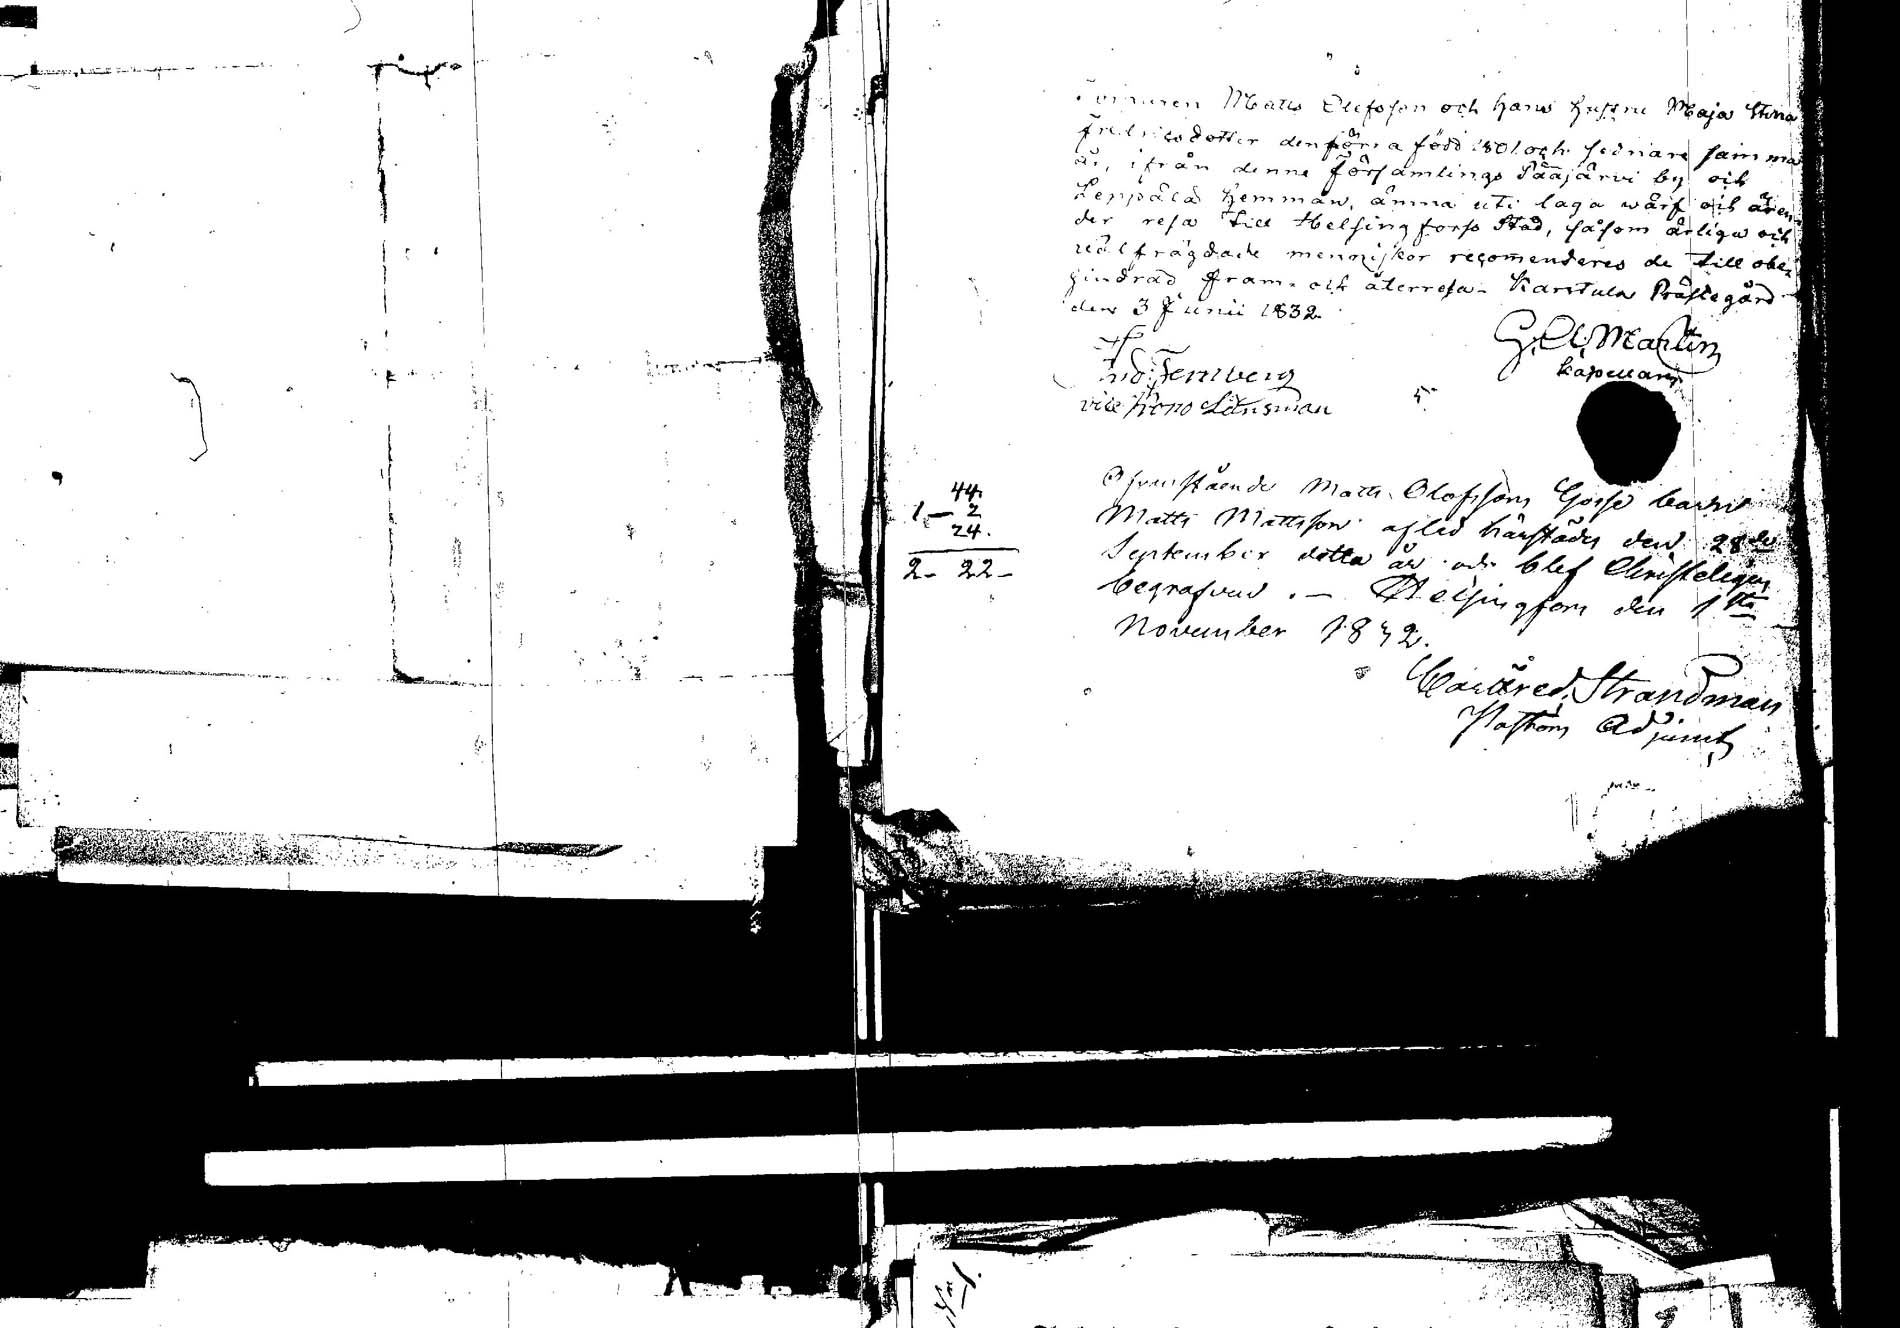 Matts Olofsson och hans hustru Maja Stina
Fredricsdotter den förra född 1801 och sednare samma
år, ifrån denne Församlings Pääjärvi by och
Leppälä hemman, ämna uti laga värf och ären-
der resa till Helsingfors Stad, såsom ärliga och
välfrägdade menniskor recomenderes de till obe-
hindrad fram- och återresa. Karstula Prästegård
den 3 Junii 1832.
G. Ol. Martin
Kapellan
Fernberg
vice Krono Länsman
5
44.
1 — 2
24.
2 - 22 -
Ofvanstående Matts Olofssons Gosse barn
Matts Mattsson afled härstädes den 28de
September detta år och blef Christeligen
begrafven. — Helsingfors den 1sta
November 1832.
Strandman
Pastors Adjunct